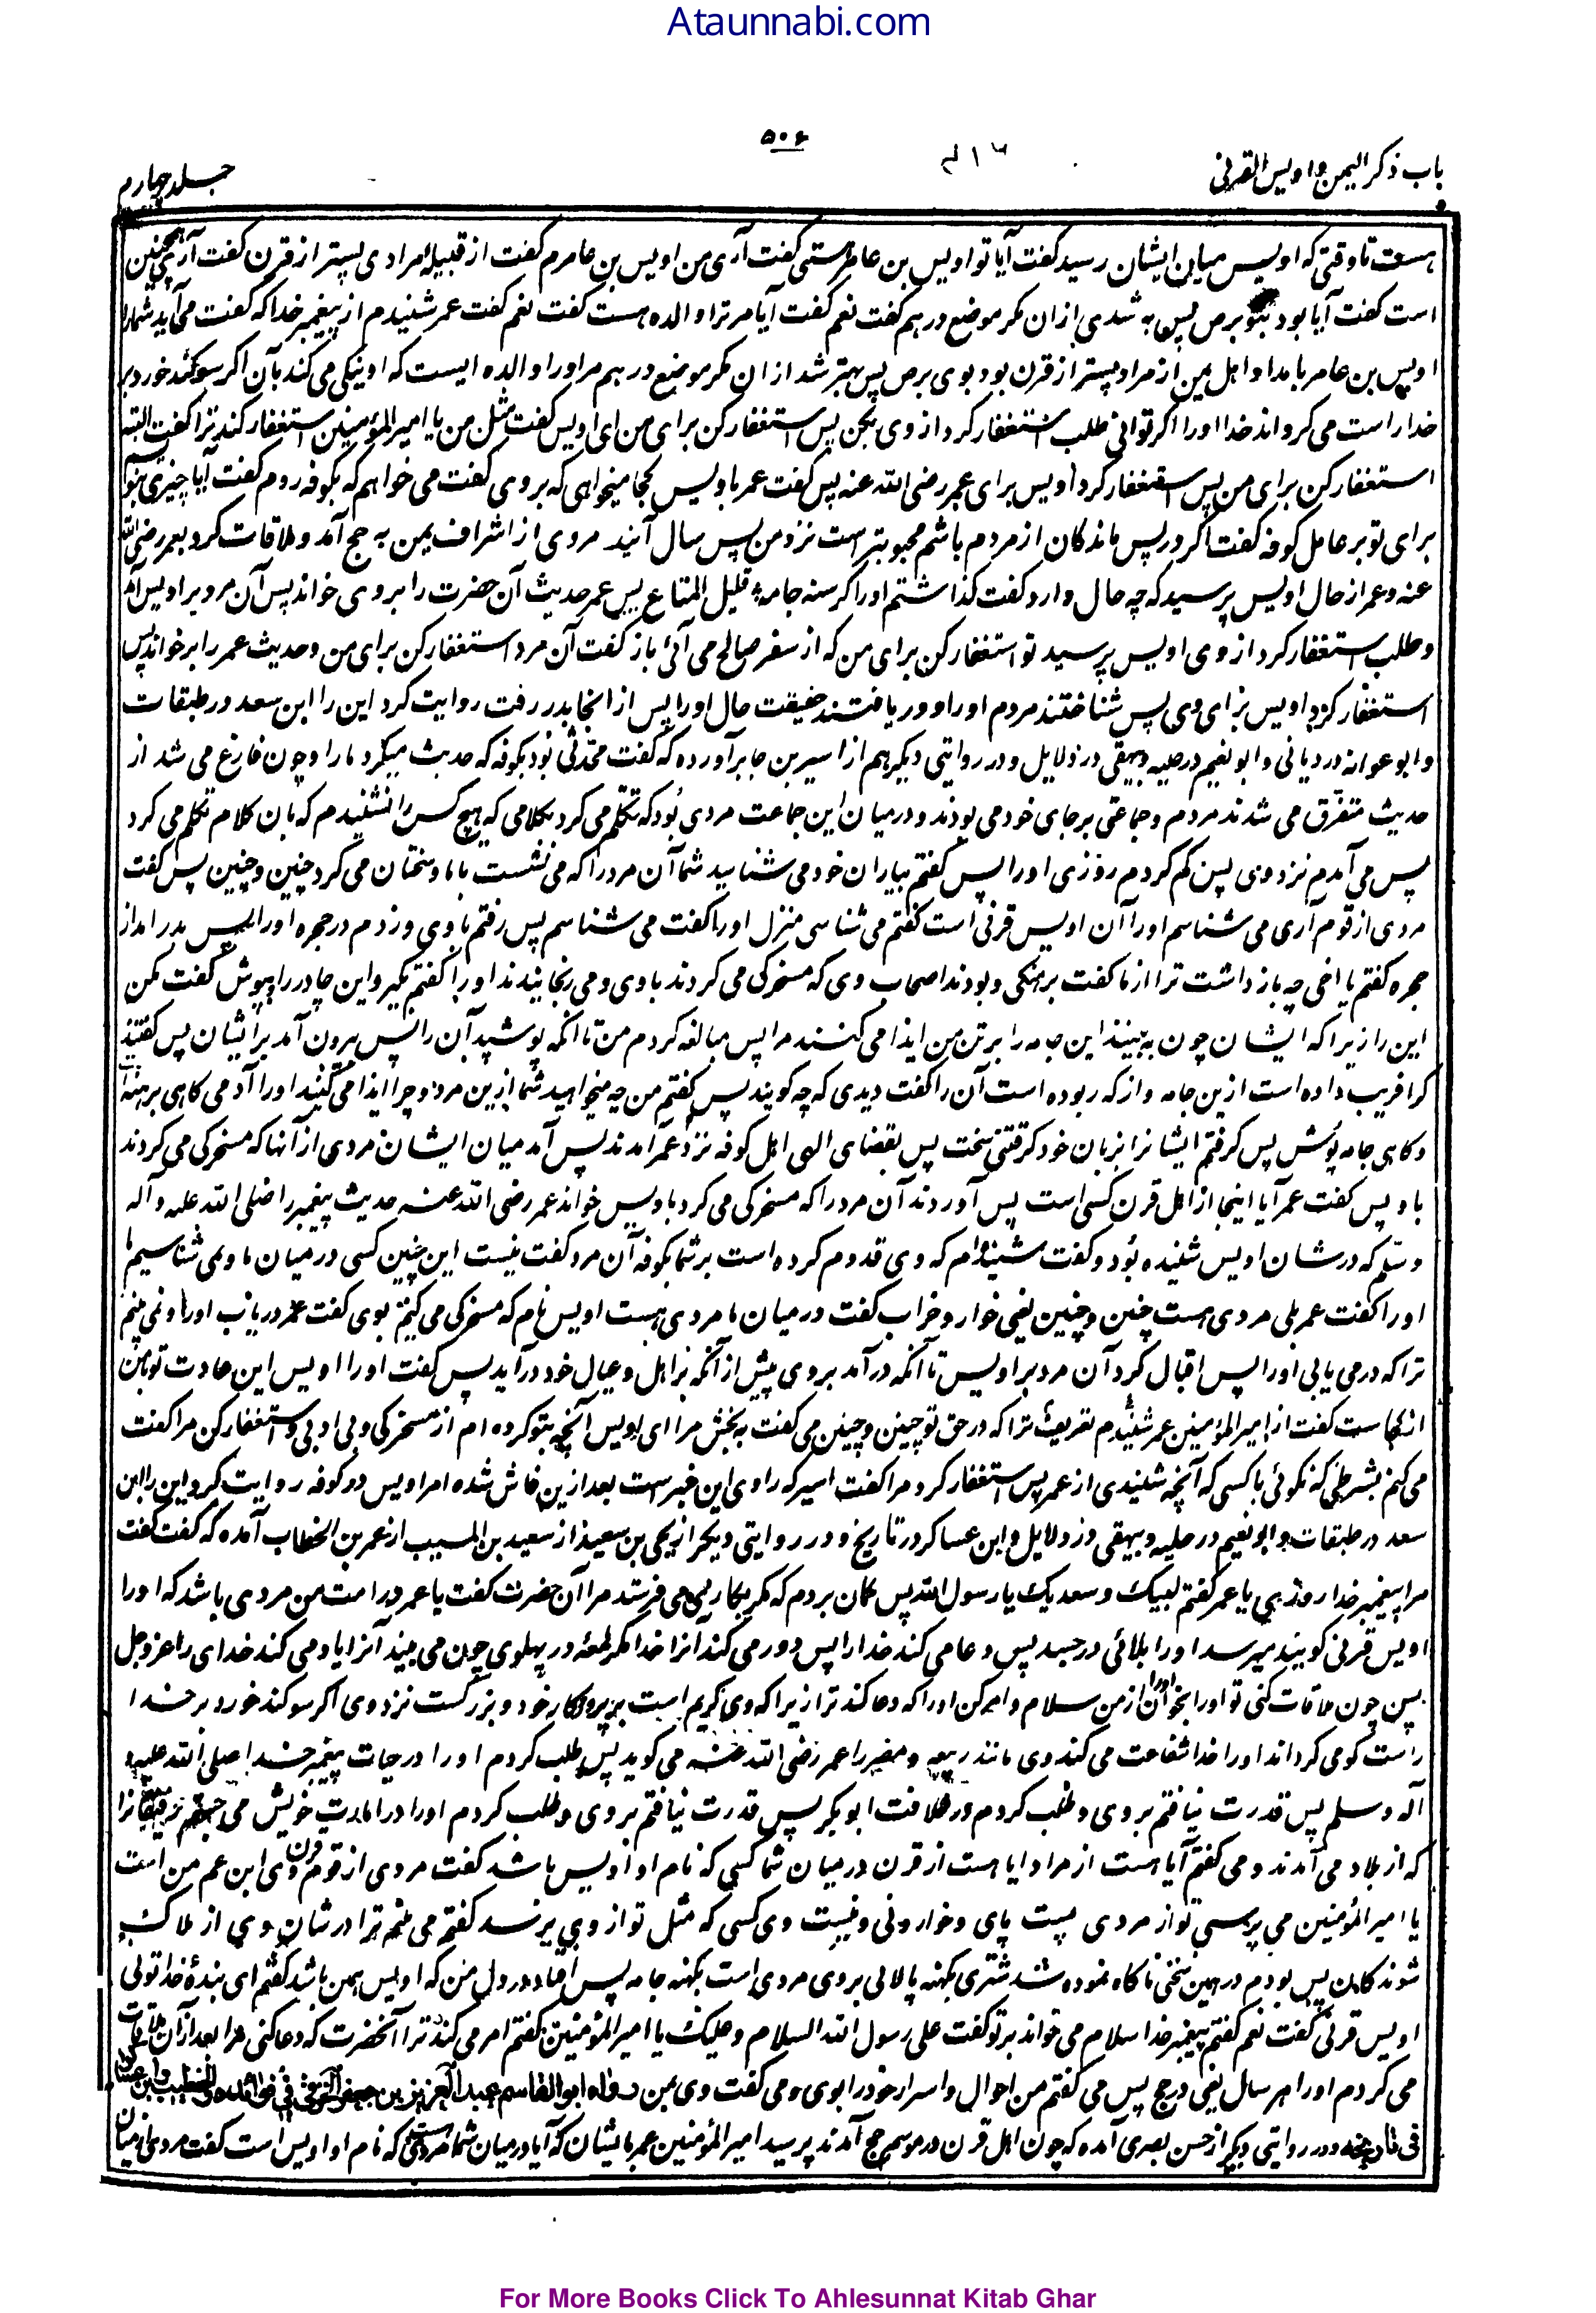 Ataunnabi.com
۵۰۶
باب ذکر الیمن و اویس القرنی
جلد چهارم
هست تا وقتی که اویس میان ایشان رسید گفت آیا تو اویس بن عامر هستی گفت آری من اویس بن عامرم گفت از قبیلهٔ مرادی پستر از قرن گفت آری همچنین
است گفت آیا بود بتو برص پس به شدی ازان مگر موضع درهم گفت نعم گفت آیا مر ترا والده هست گفت نعم گفت عمر شنیدم از پیغمبر خدا که گفت می‌آید شما را
اویس بن عامر با مداد اهل یمن از مراد پستر از قرن بود بوی برص پس بهتر شد ازان مگر موضع درهم مر او را والده ایست که او نیکی می‌کند بآن اگر سوگند خورد بر
خدا راست می‌گرداند خدا او را اگر توانی طلب استغفار کرد از وی بکن پس استغفار کن برای من ای اویس گفت مثل من یا امیر المؤمنین استغفار کند ترا گفت البته
استغفار کن برای من پس استغفار کرد اویس برای عمر رضی الله عنه پس گفت عمر باویس کجا میخواهی که بروی گفت می خواهم که بکوفه روم گفت آیا چیزی بنویسم
برای تو بر عامل کوفه گفت اگر در پس ماندگان از مردم باشم محبوبتر است نزد من پس سال آینده مردی از اشراف یمن به حج آمد و ملاقات کرد بعمر رضی الله
عنه و عمر از حال اویس پرسید که چه حال دارد گفت گذاشتم او را گرسنه جامه قلیل المتاع پس عمر حدیث آن حضرت را بروی خواند پس آن مرد بر اویس آمد
و طلب استغفار کرد از وی اویس پرسید تو استغفار کن برای من که از سفر صالح می آئی باز گفت آن مرد استغفار کن برای من و حدیث عمر را بر خواند پس
استغفار کرد اویس برای وی پس شناختند مردم او را و دریافتند حقیقت حال او را پس از انجا بدر رفت روایت کرد این را ابن سعد در طبقات
و ابو عوانه و رویانی و ابو نعیم در حلیه و بیهقی در دلایل و در روایتی دیگر هم از اسیر بن جابر آورده که گفت محدثی بود بکوفه که حدیث میکرد ما را و چون فارغ می شد از
حدیث متفرق می شدند مردم و جماعتی بر جای خود می بودند و در میان این جماعت مردی بود که تکلم می کرد بکلامی که هیچ کس را نشنیدم که بان کلام تکلم می کرد
پس می آمدم نزد وی پس گم کردم روزی او را پس گفتم بیاران خود می شناسید شما آن مرد را که می نشست با ما و سخنان می کرد چنین و چنین پس گفت
مردی از قوم آری می شناسم او را آن اویس قرنی است گفتم می شناسی منزل او را گفت می شناسم پس رفتم با وی و زدم در حجره او را پس بدر آمد از
حجره گفتم یا اخی چه باز داشت ترا از ما گفت برهنگی و بودند اصحاب وی که مسخرگی می کردند با وی و می رنجانیدند او را گفتم بگیر و این چادر را بپوش گفت مکن
این را زیرا که ایشان چون به بینند این جامه را بر تن من ایذا می کنند مرا پس مبالغه کردم من تا آنکه پوشید آن را پس بیرون آمد بر ایشان پس گفتند
کرا فریب داده است ازین جامه و از که ربوده است آن را گفت دیدی که چه گویند پس گفتم من چه میخواهید شما ازین مرد و چرا ایذا می کنید او را آدمی گاهی برهنه است
و گاهی جامه پوش پس گرفتم ایشانرا بزبان خود گرفتنی سخت پس بقضای الهی اهل کوفه نزد عمر آمدند پس آمد میان ایشان مردی از آنها که مسخرگی می کردند
باو پس گفت عمر آیا اینجا از اهل قرن کسی است پس آوردند آن مرد را که مسخرگی می کرد باویس خواند عمر رضی الله عنه حدیث پیغمبر را صلی الله علیه و آله
و سلم که در شان اویس شنیده بود و گفت شنیده‌ام که وی قدوم کرده است بر شما بکوفه آن مرد گفت نیست این چنین کسی در میان ما و نمی شناسیم ما
او را گفت عمر بلی مردی هست چنین و چنین یعنی خوار و خراب گفت در میان ما مردی هست اویس نام که مسخرگی می کنیم بوی گفت عمر دریاب او را و نمی بینم
ترا که درمی یابی او را پس اقبال کرد آن مرد بر اویس تا آنکه در آمد بر وی پیش از آنکه بر اهل و عیال خود در آید پس گفت او را اویس این عادت تو با من
از کجاست گفت از امیر المؤمنین عمر شنیدم تعریف ترا که در حق تو چنین و چنین می گفت به بخش مرا ای اویس آنچه بتو کرده ام از مسخرگی و بی ادبی و استغفار کن مرا گفت
می کنم بشرطی که نگوئی با کسی که آنچه شنیدی از عمر پس استغفار کرد مرا گفت اسیر که راوی این خبر است بعد ازین فاش شده امر اویس در کوفه روایت کرد این را ابن
سعد در طبقات و ابو نعیم در حلیه و بیهقی در دلایل و ابن عساکر در تاریخ و در روایتی دیگر از یحیی بن سعید از سعید بن المسیب از عمر بن الخطاب آمده که گفت گفت
مرا پیغمبر خدا روزی یا عمر گفتم لبیک و سعدیک یا رسول الله پس گمان بردم که مگر بکاری می فرستد مرا آن حضرت گفت یا عمر در امت من مردی باشد که او را
اویس قرنی گویند میرسد او را بلائی در جسد پس دعا می کند خدا را پس دور می کند آنرا خدا مگر لمعهٔ در پهلوی چون می بیند آنرا یاد می کند خدای را عز و جل
پس چون ملاقات کنی تو او را بخوان او را از من سلام و امر کن او را که دعا کند ترا زیرا که وی کریم است بر پروردگار خود و بزرگست نزد وی اگر سوگند خورد بر خدا
راست گو می گرداند او را خدا شفاعت می کند وی مانند ربیعه و مضر را عمر رضی الله عنه می گوید پس طلب کردم او را در حیات پیغمبر خدا صلی الله علیه و
آله و سلم پس قدرت نیافتم بر وی و طلب کردم در خلافت ابو بکر پس قدرت نیافتم بر وی و طلب کردم او را در امارت خویش می جستم رفیقانرا
که از بلاد می آمدند و می گفتم آیا هست از مراد آیا هست از قرن در میان شما کسی که نام او اویس باشد گفت مردی از قوم قرن وی ابن عم من است
یا امیر المؤمنین می پرسی تو از مردی پست پای و خوار و دنی و نیست وی کسی که مثل تو از وی پرسد گفتم می بینم ترا در شان وی از هلاک
شوندگان پس بودم در همین سخن ناگاه نموده شد شتری کهنه پالانی بر وی مردی است کهنه جامه پس افتاد در دل من که اویس همین باشد گفتم ای بندهٔ خدا توئی
اویس قرنی گفت نعم گفتم پیغمبر خدا سلام می خواند بر تو گفت علی رسول الله السلام و علیک یا امیر المؤمنین گفتم امر می کند ترا آنحضرت که دعا کنی مرا بعد ازان ملاقات
می کردم او را هر سال یعنی در حج پس می گفتم من احوال و اسرار خود را بوی و می گفت وی بمن رواه ابو القاسم عبد العزیز بن جعفر الخرقی فی فوائده و الخطیب و ابن عساکر
فی تاریخه و در روایتی دیگر از حسن بصری آمده که چون اهل قرن در موسم حج آمدند پرسید امیر المؤمنین عمر بایشان که آیا در میان شما مردی هست که نام او اویس است گفت مردی از میان
For More Books Click To Ahlesunnat Kitab Ghar